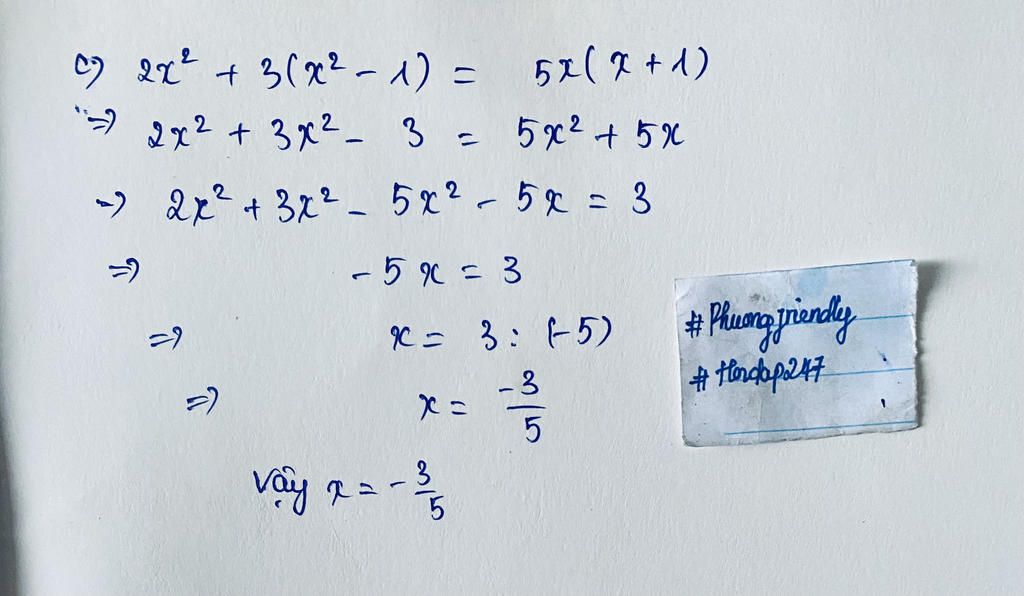 c) 2x² + 3(x² - 1) = 5x(x + 1)
=> 2x² + 3x² - 3 = 5x² + 5x
=> 2x² + 3x² - 5x² - 5x = 3
=> -5x = 3
=> x = 3 : (-5)
=> x = -3/5
Vậy x = -3/5
# Phuongfriendly
# Hoidap247